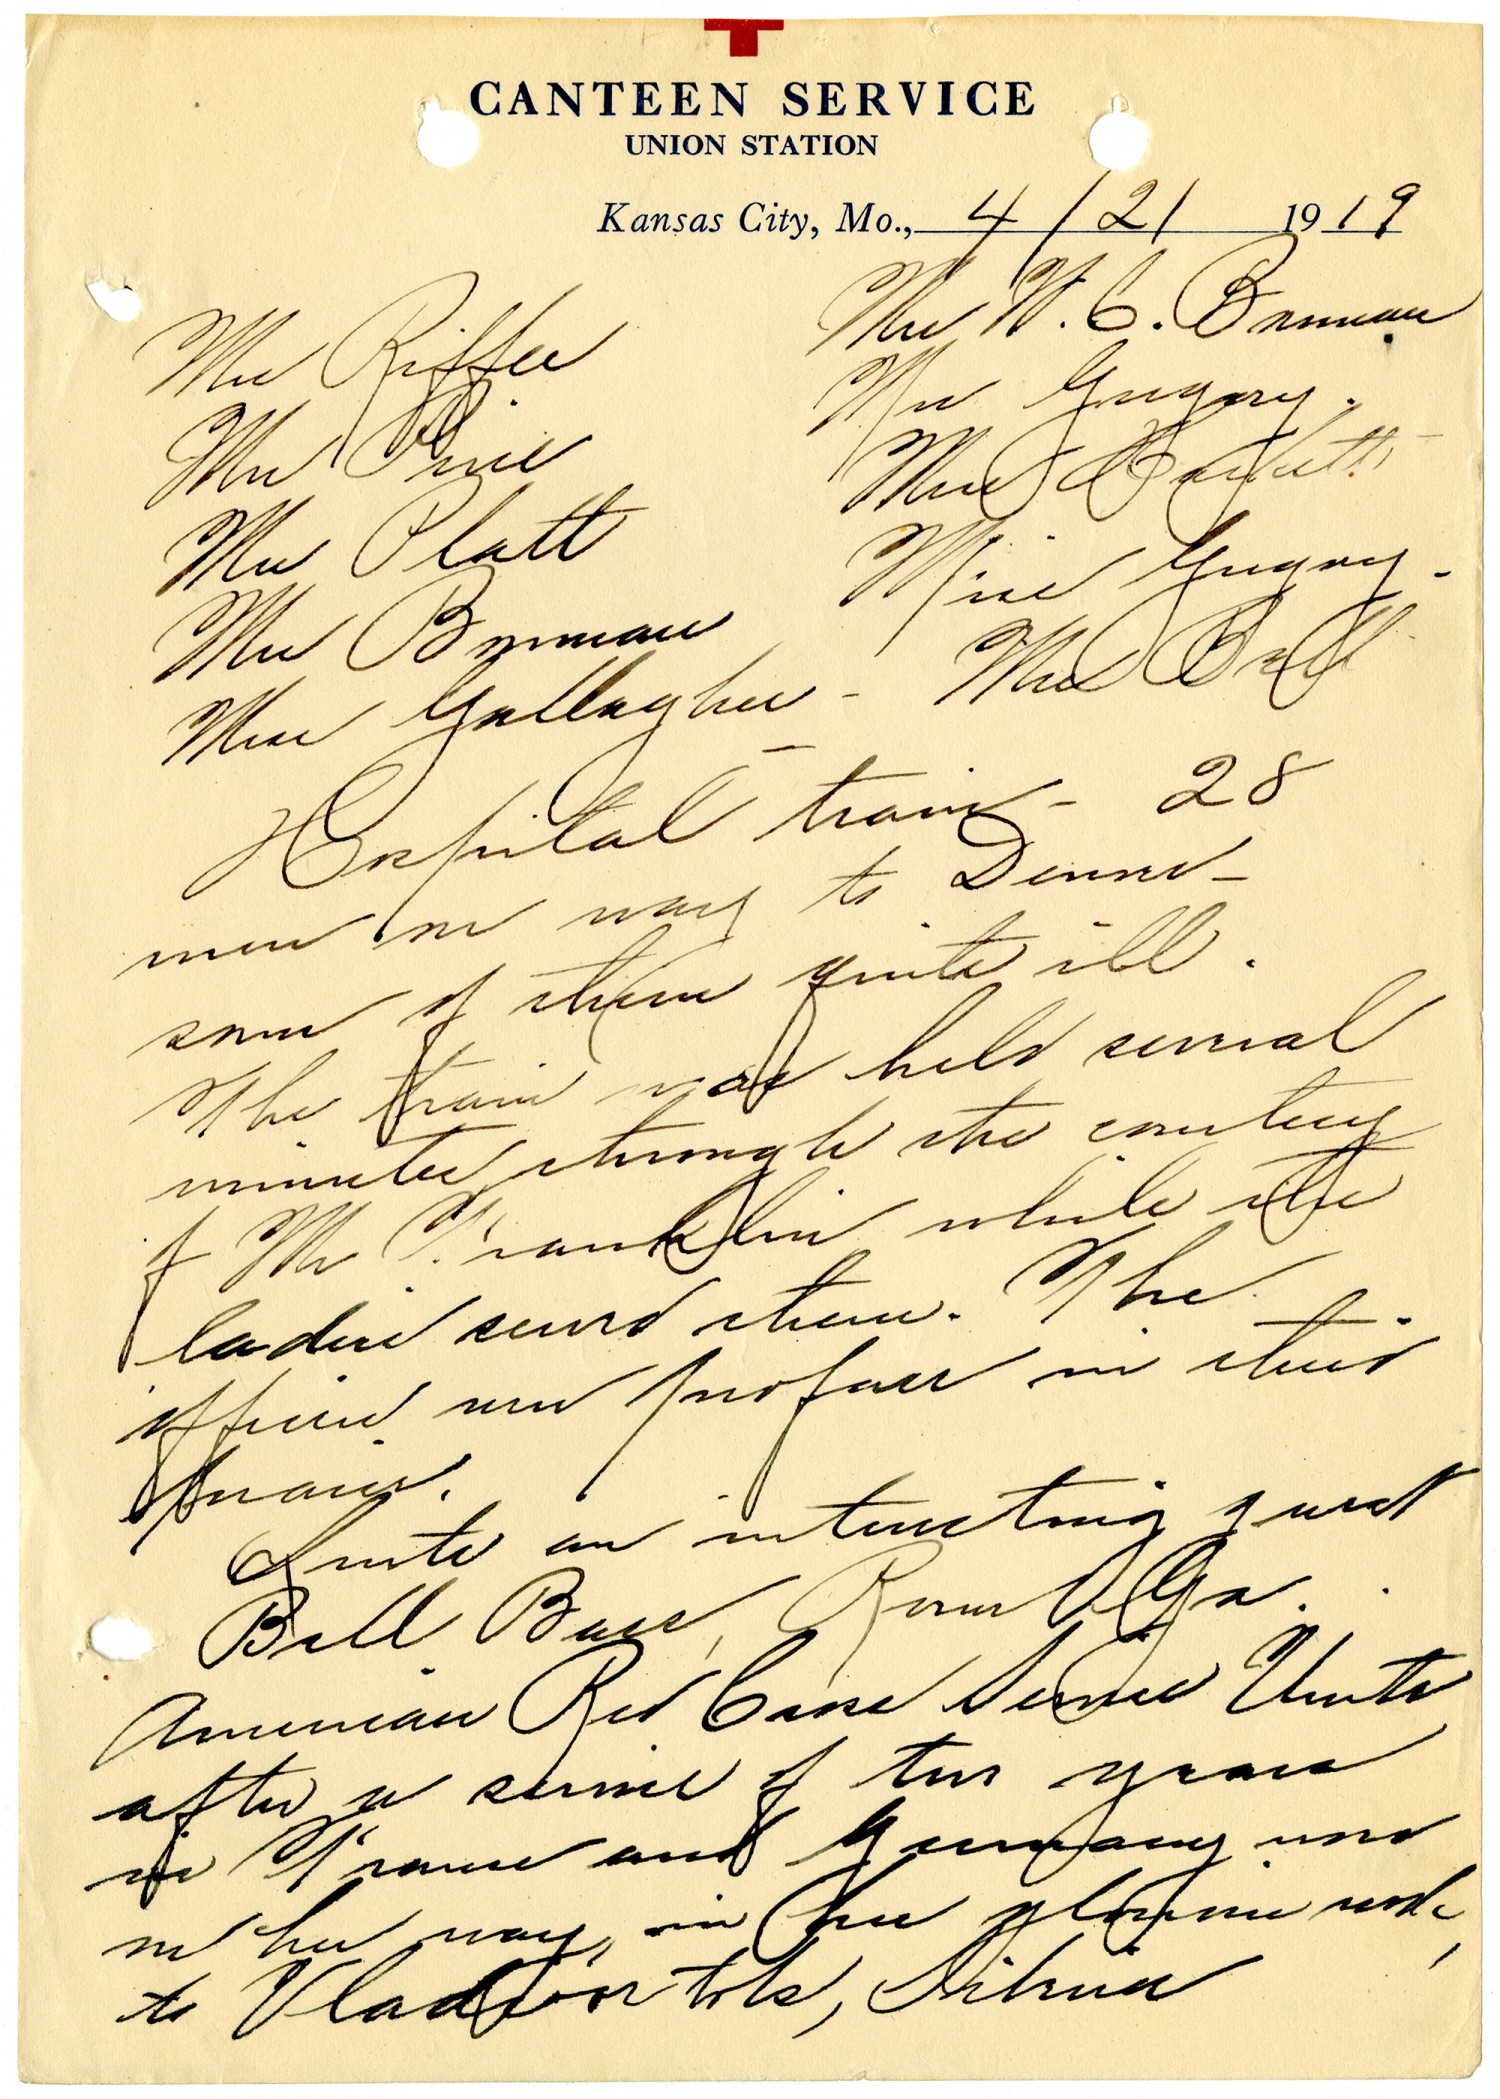 CANTEEN SERVICE
UNION STATION
Kansas City, Mo., 4/21 1919
Mrs W. C. Bowman
Mrs Gregory.
Mrs Hackett
Miss Gregory.
Mrs Ball
Mrs Riffle
Mrs Pine
Mrs Platt
Mrs Bowman
Miss Gallagher -
Hospital train - 28
men on way to Denver -
some of them quite ill.
The train was held several
minutes through the courtesy
of Mr Franklin while the
ladies served them. The
officers were profuse in their
praise.
Quite an interesting guest
Bell Bass, Rome Ga.
American Red Cross Service Units
after a service of two years
in France and Germany now
on her way, in her glorious work,
to Vladivostok, Siberia